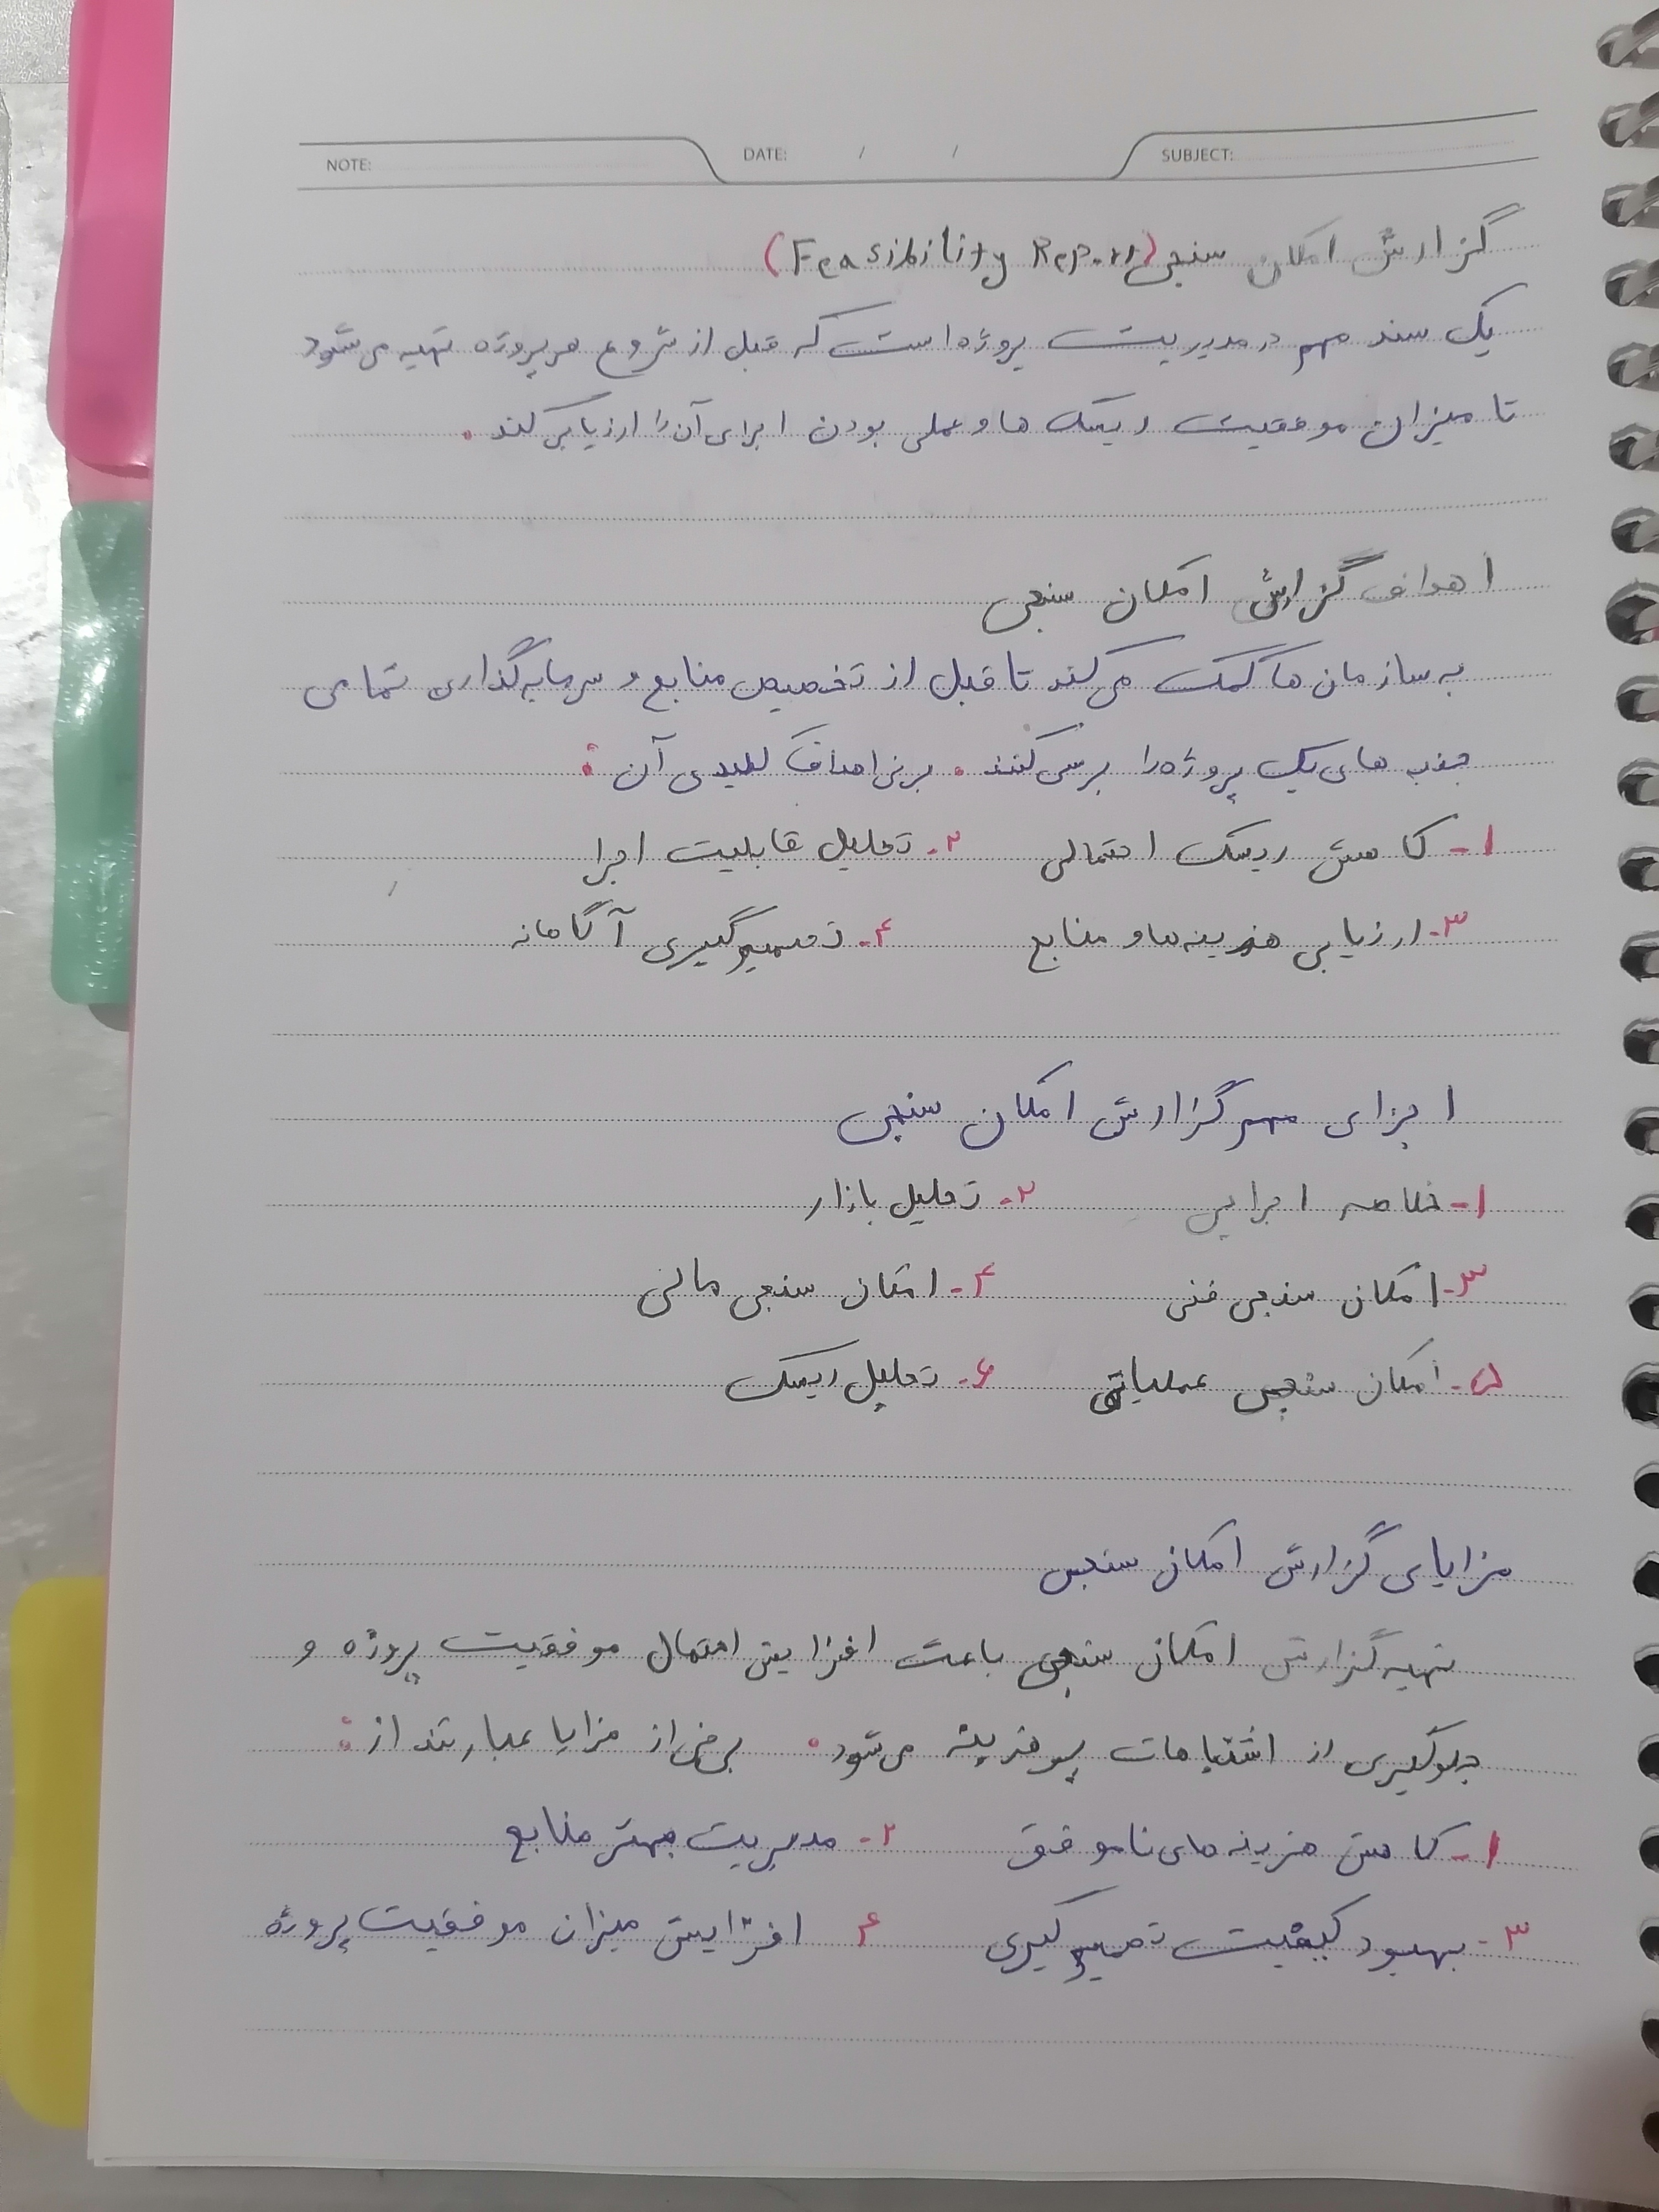 NOTE: DATE: / / SUBJECT:
گزارش امکان سنجی (Feasibility Report)
یک سند مهم در مدیریت پروژه است که قبل از شروع هر پروژه تهیه می شود
تا میزان موفقیت ریسک ها و عملی بودن اجرای آن را ارزیابی کند .
اهداف گزارش امکان سنجی
به سازمان ها کمک می کند تا قبل از تخصیص منابع و سرمایه گذاری تمامی
جنبه های یک پروژه را برسی کنند . برخی اهداف کلیدی آن :
۱- کاهش ریسک احتمالی ۲- تحلیل قابلیت اجرا
۳- ارزیابی هزینه ها و منابع ۴- تصمیم گیری آگاهانه
اجزای مهم گزارش امکان سنجی
۱- خلاصه اجرایی ۲- تحلیل بازار
۳- امکان سنجی فنی ۴- امکان سنجی مالی
۵- امکان سنجی عملیاتی ۶- تحلیل ریسک
مزایای گزارش امکان سنجی
تهیه گزارش امکان سنجی باعث افزایش احتمال موفقیت پروژه و
جلوگیری از اشتباهات پرهزینه می شود . برخی از مزایا عبارتند از :
۱- کاهش هزینه های ناموفق ۲- مدیریت بهتر منابع
۳- بهبود کیفیت تصمیم گیری ۴ افزایش میزان موفقیت پروژه